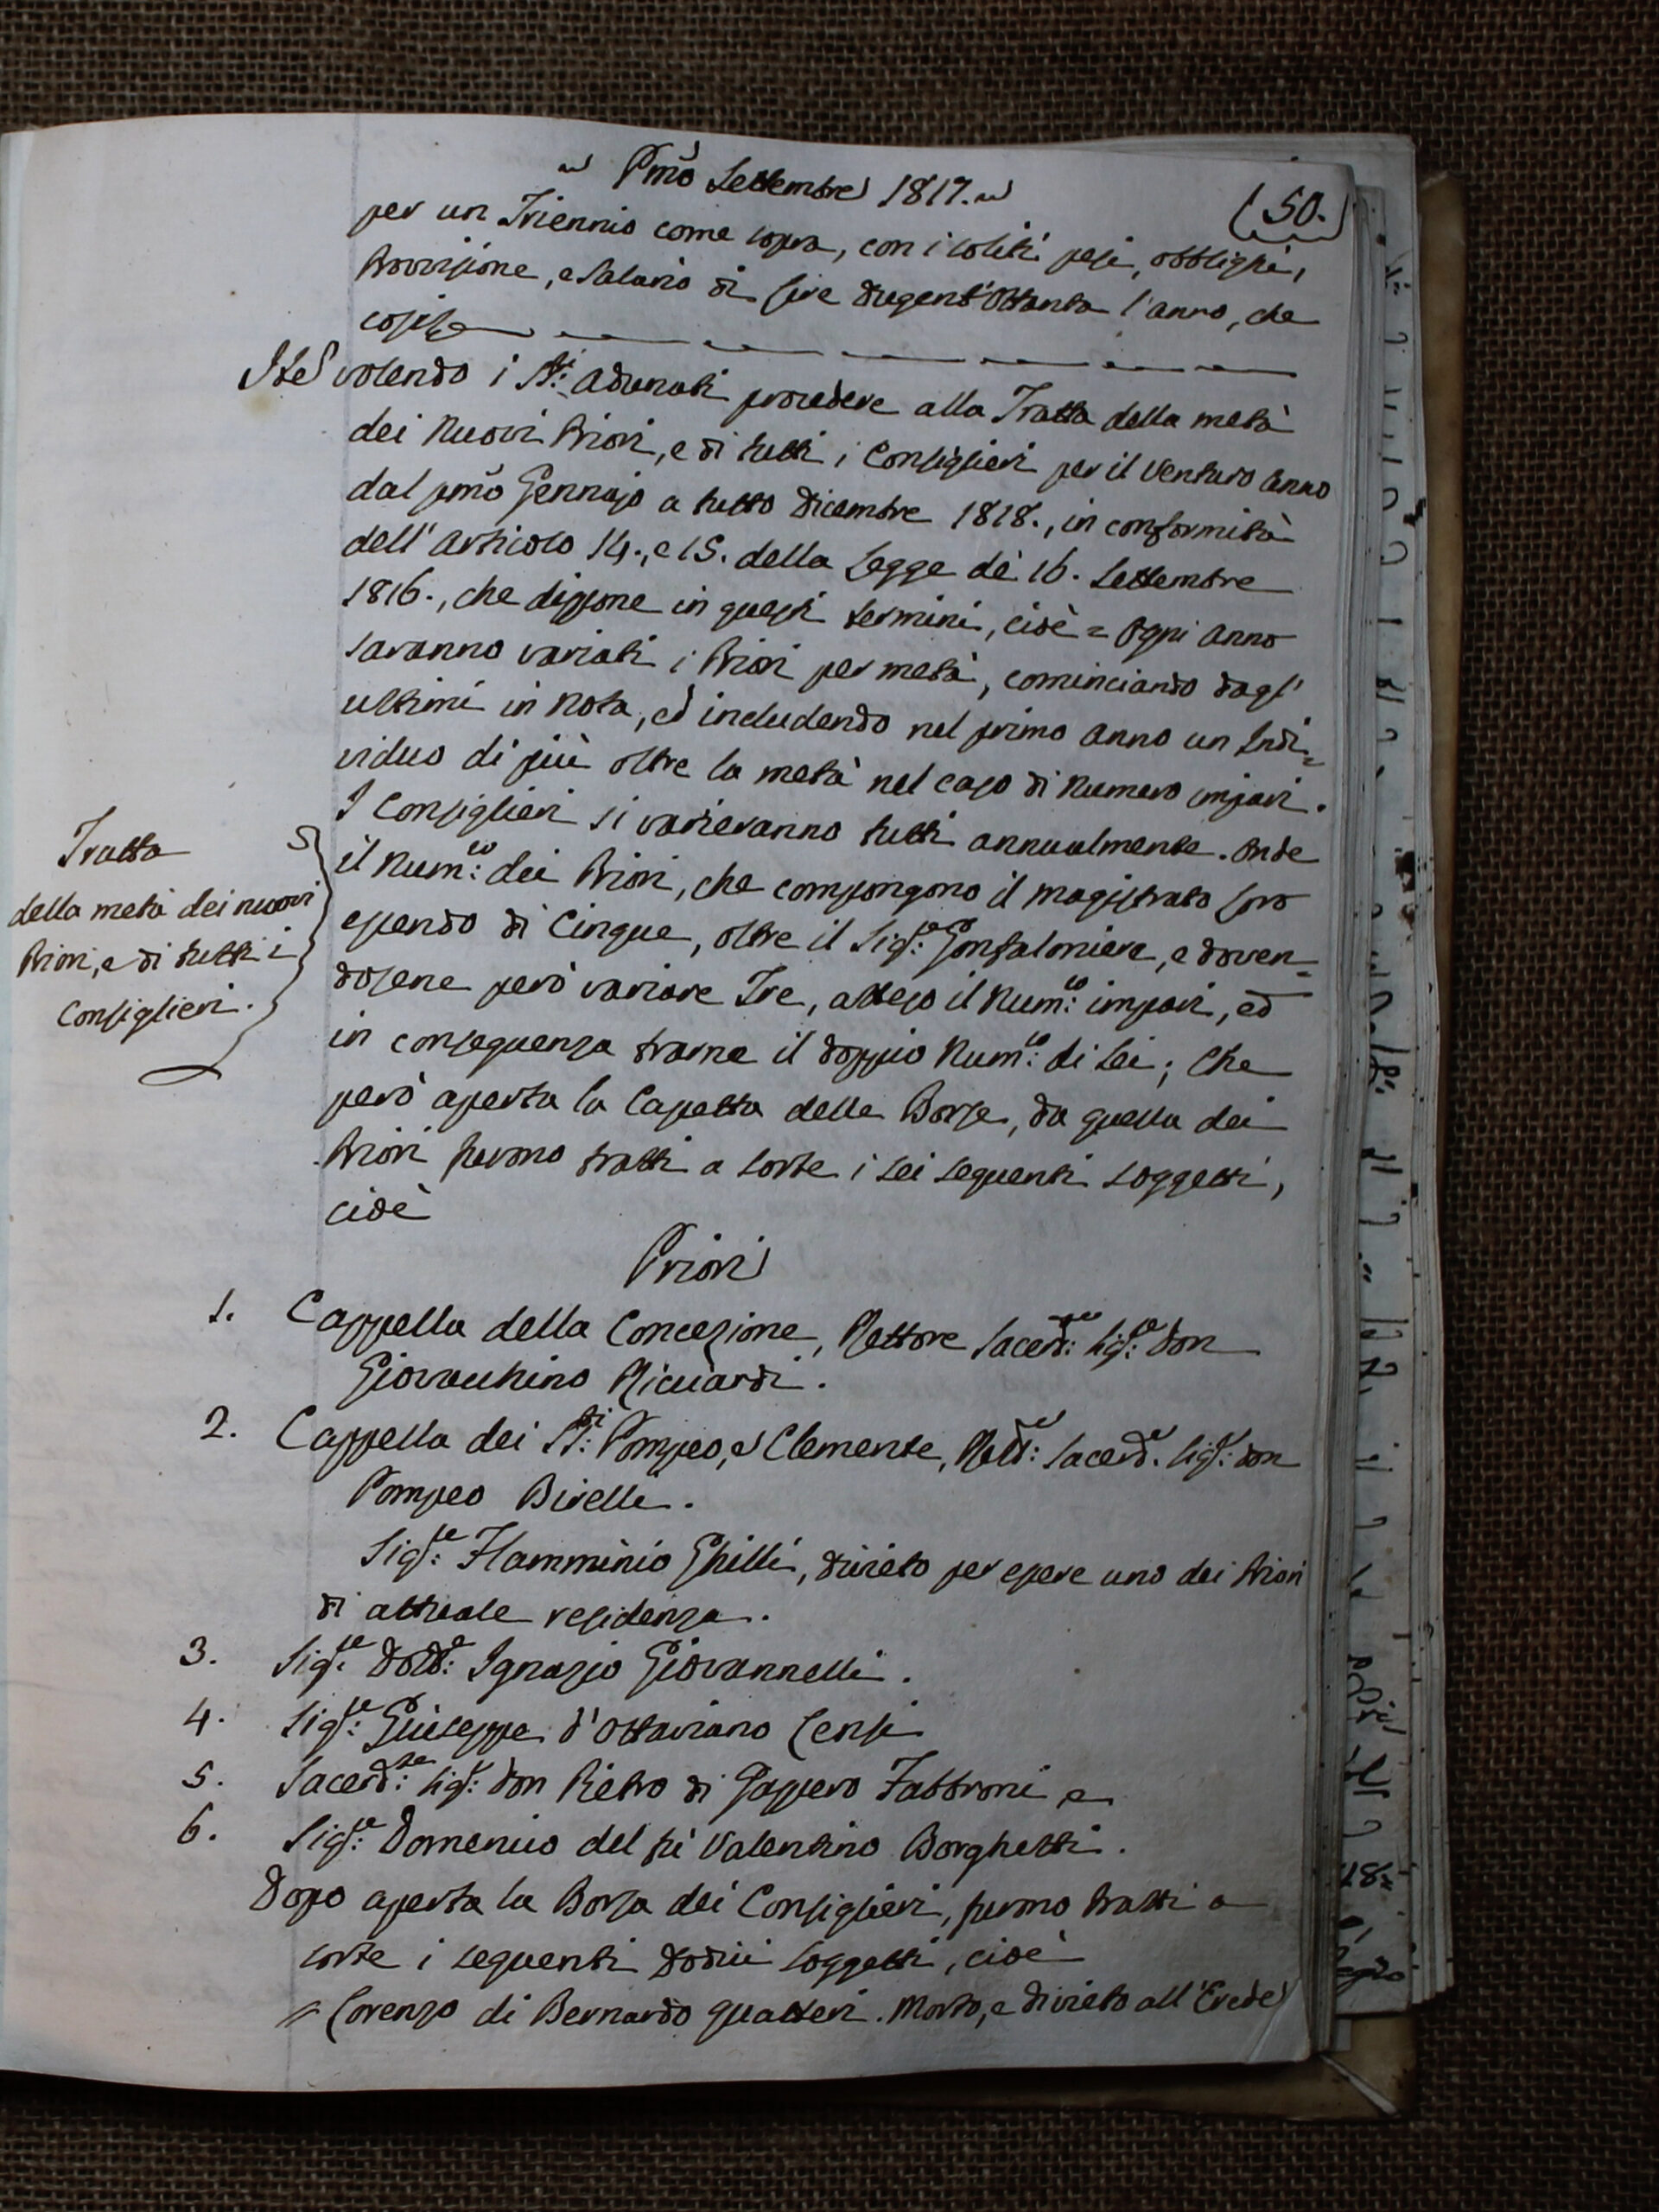 Pmo Settembre 1817.
(50.)
per un Triennio come sopra, con i soliti pesi, obblighi,
Provvisione, e Salario di Lire dugent'Ottanta l'anno, che
così
Ite volendo i SS:ri Adunati procedere alla Tratta della metà
dei Nuovi Priori, e di tutti i Consiglieri per il Venturo Anno
dal pmo Gennajo a tutto Dicembre 1818., in conformità
dell'Articolo 14., e 15. della Legge de' 16. Settembre
1816., che dispone in questi termini, cioè = Ogni Anno
saranno variati i Priori per metà, cominciando dagl'
ultimi in Nota, ed includendo nel primo Anno un Indi=
viduo di più oltre la metà nel caso di Numero impari.
I Consiglieri si varieranno tutti annualmente. Onde
il Num:ro dei Priori, che compongono il Magistrato loro
essendo di Cinque, oltre il Sig:re Gonfaloniere, e doven=
dosene però variare Tre, atteso il Num:ro impari, ed
in conseguenza trarne il doppio Num:ro di Sei; Che
però aperta la Cassetta delle Borse, da quella dei
Priori furono tratti a sorte i sei seguenti soggetti,
cioè
Tratta
della metà dei nuovi
Priori, e di tutti i
Consiglieri.
Priori
1. Cappella della Concezione, Rettore Sacerd:te Sig:re Don
Giovacchino Ricciardi.
2. Cappella dei SS:ti Pompeo, e Clemente, Rett:re Sacerd:e Sig:r Don
Pompeo Birelle.
Sig:re Flamminio Ghilli, divieto per essere uno dei Priori
di attuale residenza.
3. Sig:re Dott:e Ignazio Giovannelli.
4. Sig:re Giuseppe d'Ottaviano Lensi
5. Sacerd:te Sig:r Don Pietro di Gaspero Fabbroni e
6. Sig:re Domenico del fù Valentino Borghetti.
Dopo aperta la Borsa dei Consiglieri, furono tratti a
sorte i seguenti dodici soggetti, cioè
Lorenzo di Bernardo Gualteri. Morto, e divieto all'Erede